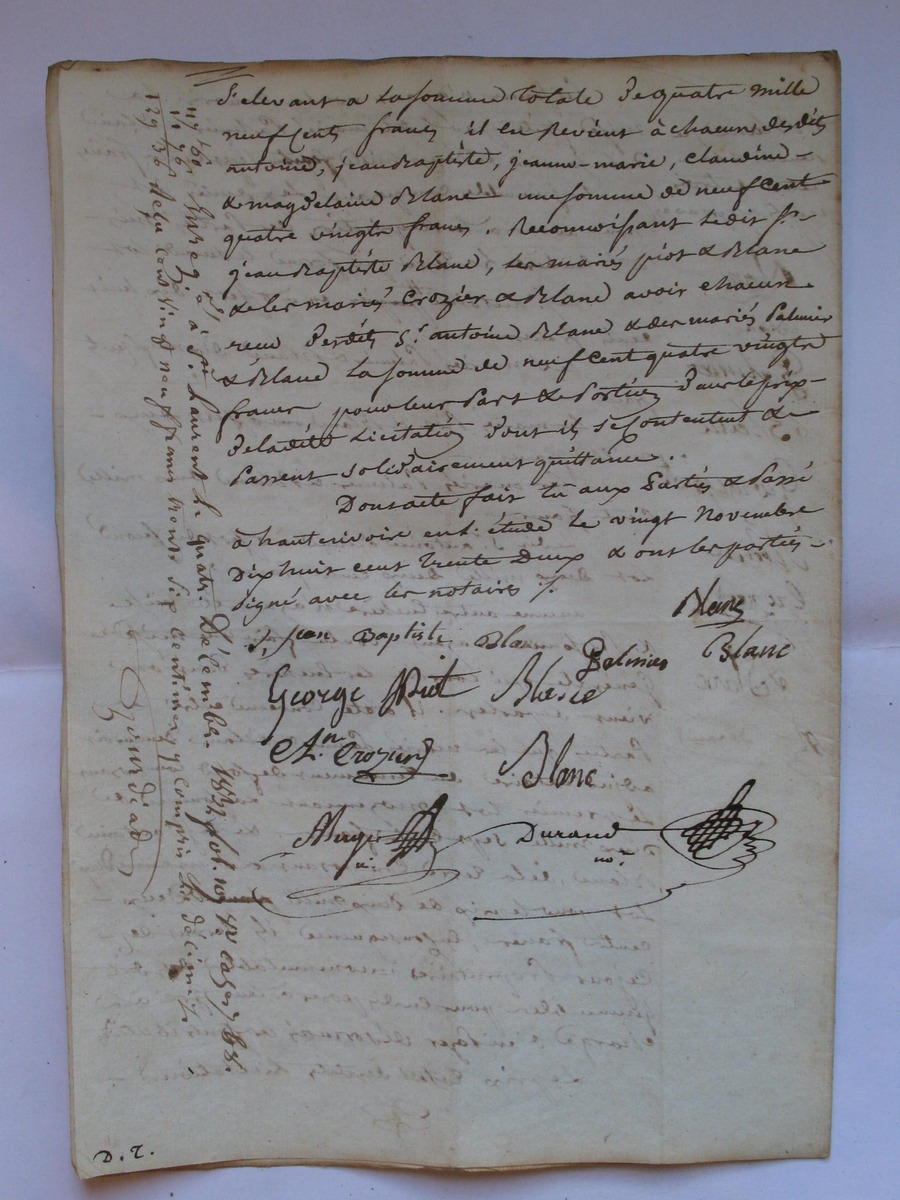 S'elevant a la somme totale de quatre mille
neuf cents francs il en Revient à chacun desdits
antoine, jean Baptiste, jeanne-marie, claudine
& magdelaine Blanc une somme de neuf cent
quatre vingts francs. Reconnoissant Ledit Sr
jean Baptiste Blanc, Les mariés piot & Blanc
& les mariés Crozier & Blanc avoir chacun
recu Desdits Sr. antoine Blanc & des mariés Palmier
& Blanc La somme de neuf cent quatre vingts
francs pour leur Part & Portion Dans le prix
De ladite Licitation Dont ils se Contentent &
Passent solidairement quittance.
Dont acte fait Lû aux Parties & Passé
à hauterivoire en l. étude le vingt Novembre
Dix huit cent trente Deux & ont les parties
signé avec les notaires /.
Blanc
Jean Baptiste Blanc
Palmier Blanc
George Piot Blanc
Atn Crozier
Blanc
Durand
not.
Enregié. à St. Laurent le quatre Décembre 1832 fol. 109
Reçu cent vingt neuf francs trente six centimes y compris le décime /.
117 60
11 76
129 36
D. T.